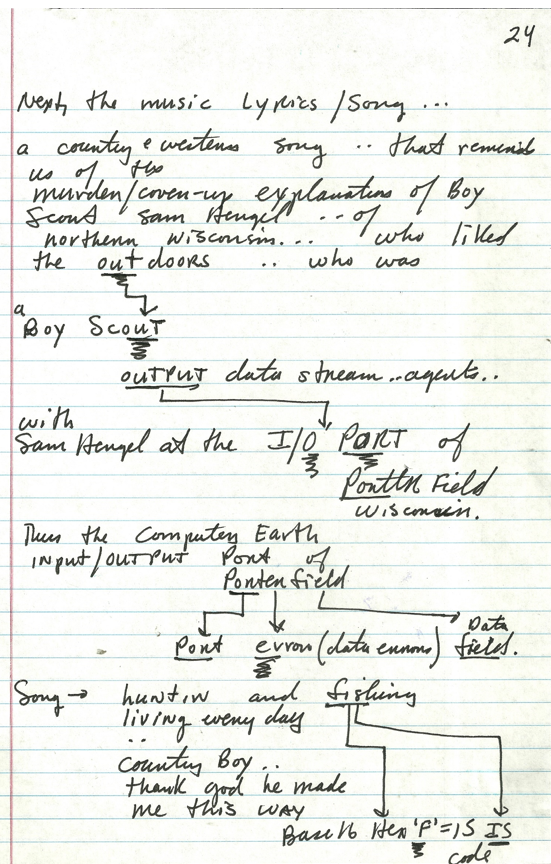 24
Next, the music Lyrics/Song ...
a country & westens song .. that reminds
us of the
murder/cover-up explanation of Boy
Scout Sam Hengel ... of
northern wisconsin... who liked
the outdoors .. who was
a
Boy Scout
OUTPUT data stream..agents..
with
Sam Hengel at the I/O PORT of
Porter Field
Wisconsin.
Thus the Computer Earth
INPUT/OUTPUT Port of
Porterfield
Port error (data errors) Data
field.
Song → huntin and fishing
living every day
..
Country Boy ..
thank god he made
me this way
Base 16 Hex 'F'=15 IS
code